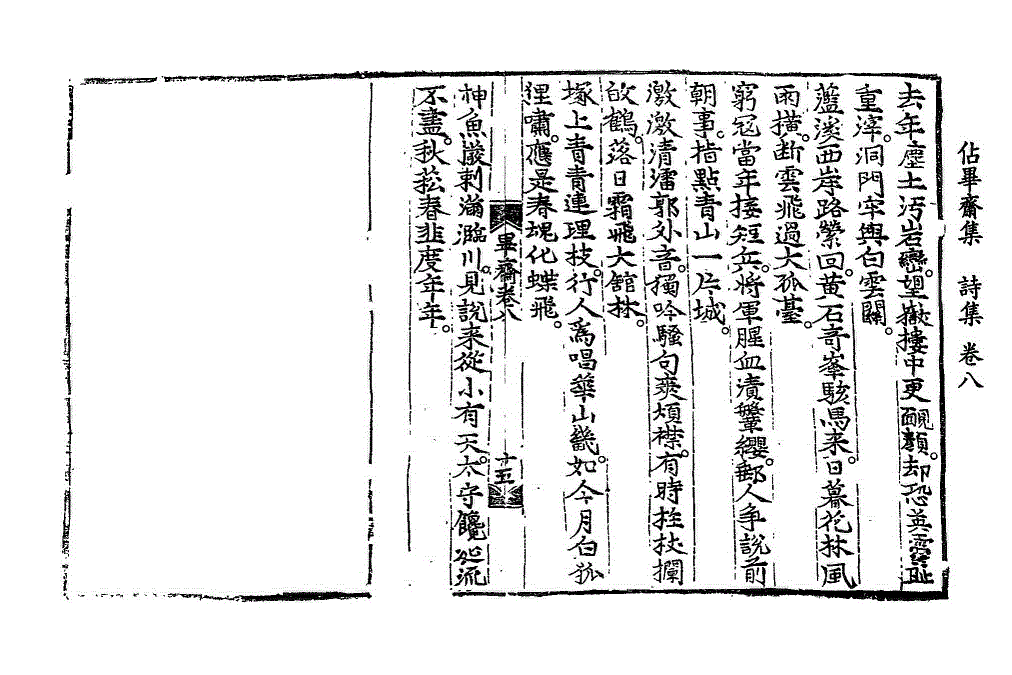 佔畢齋集　詩集　卷八
去年塵土汚岩巒。望嶽摟中更靦顏。却恐英靈耻
重滓。洞門牢與白雲關。
藍淡西岸路縈回。黃石奇峯駭馬来。日暮花林風
雨橫。断雲飛過大孤臺。
窮寇當年接短兵。將軍腥血漬鞶纓。郵人争說前
朝事。指點青山一片城。
激激清㵎郭外音。獨吟騷句爽煩襟。有時拄杖攔
欿鶴。落日霜飛大館林。
塚上青青連理枝。行人爲唱華山畿。如今月白狐
狸嘯。應是春魂化蝶飛。
畢齋卷八
十五
神魚巌剌瀚㴩川。見說来從小有天。太守饞涎流
不盡。秋菘春韭度年年。